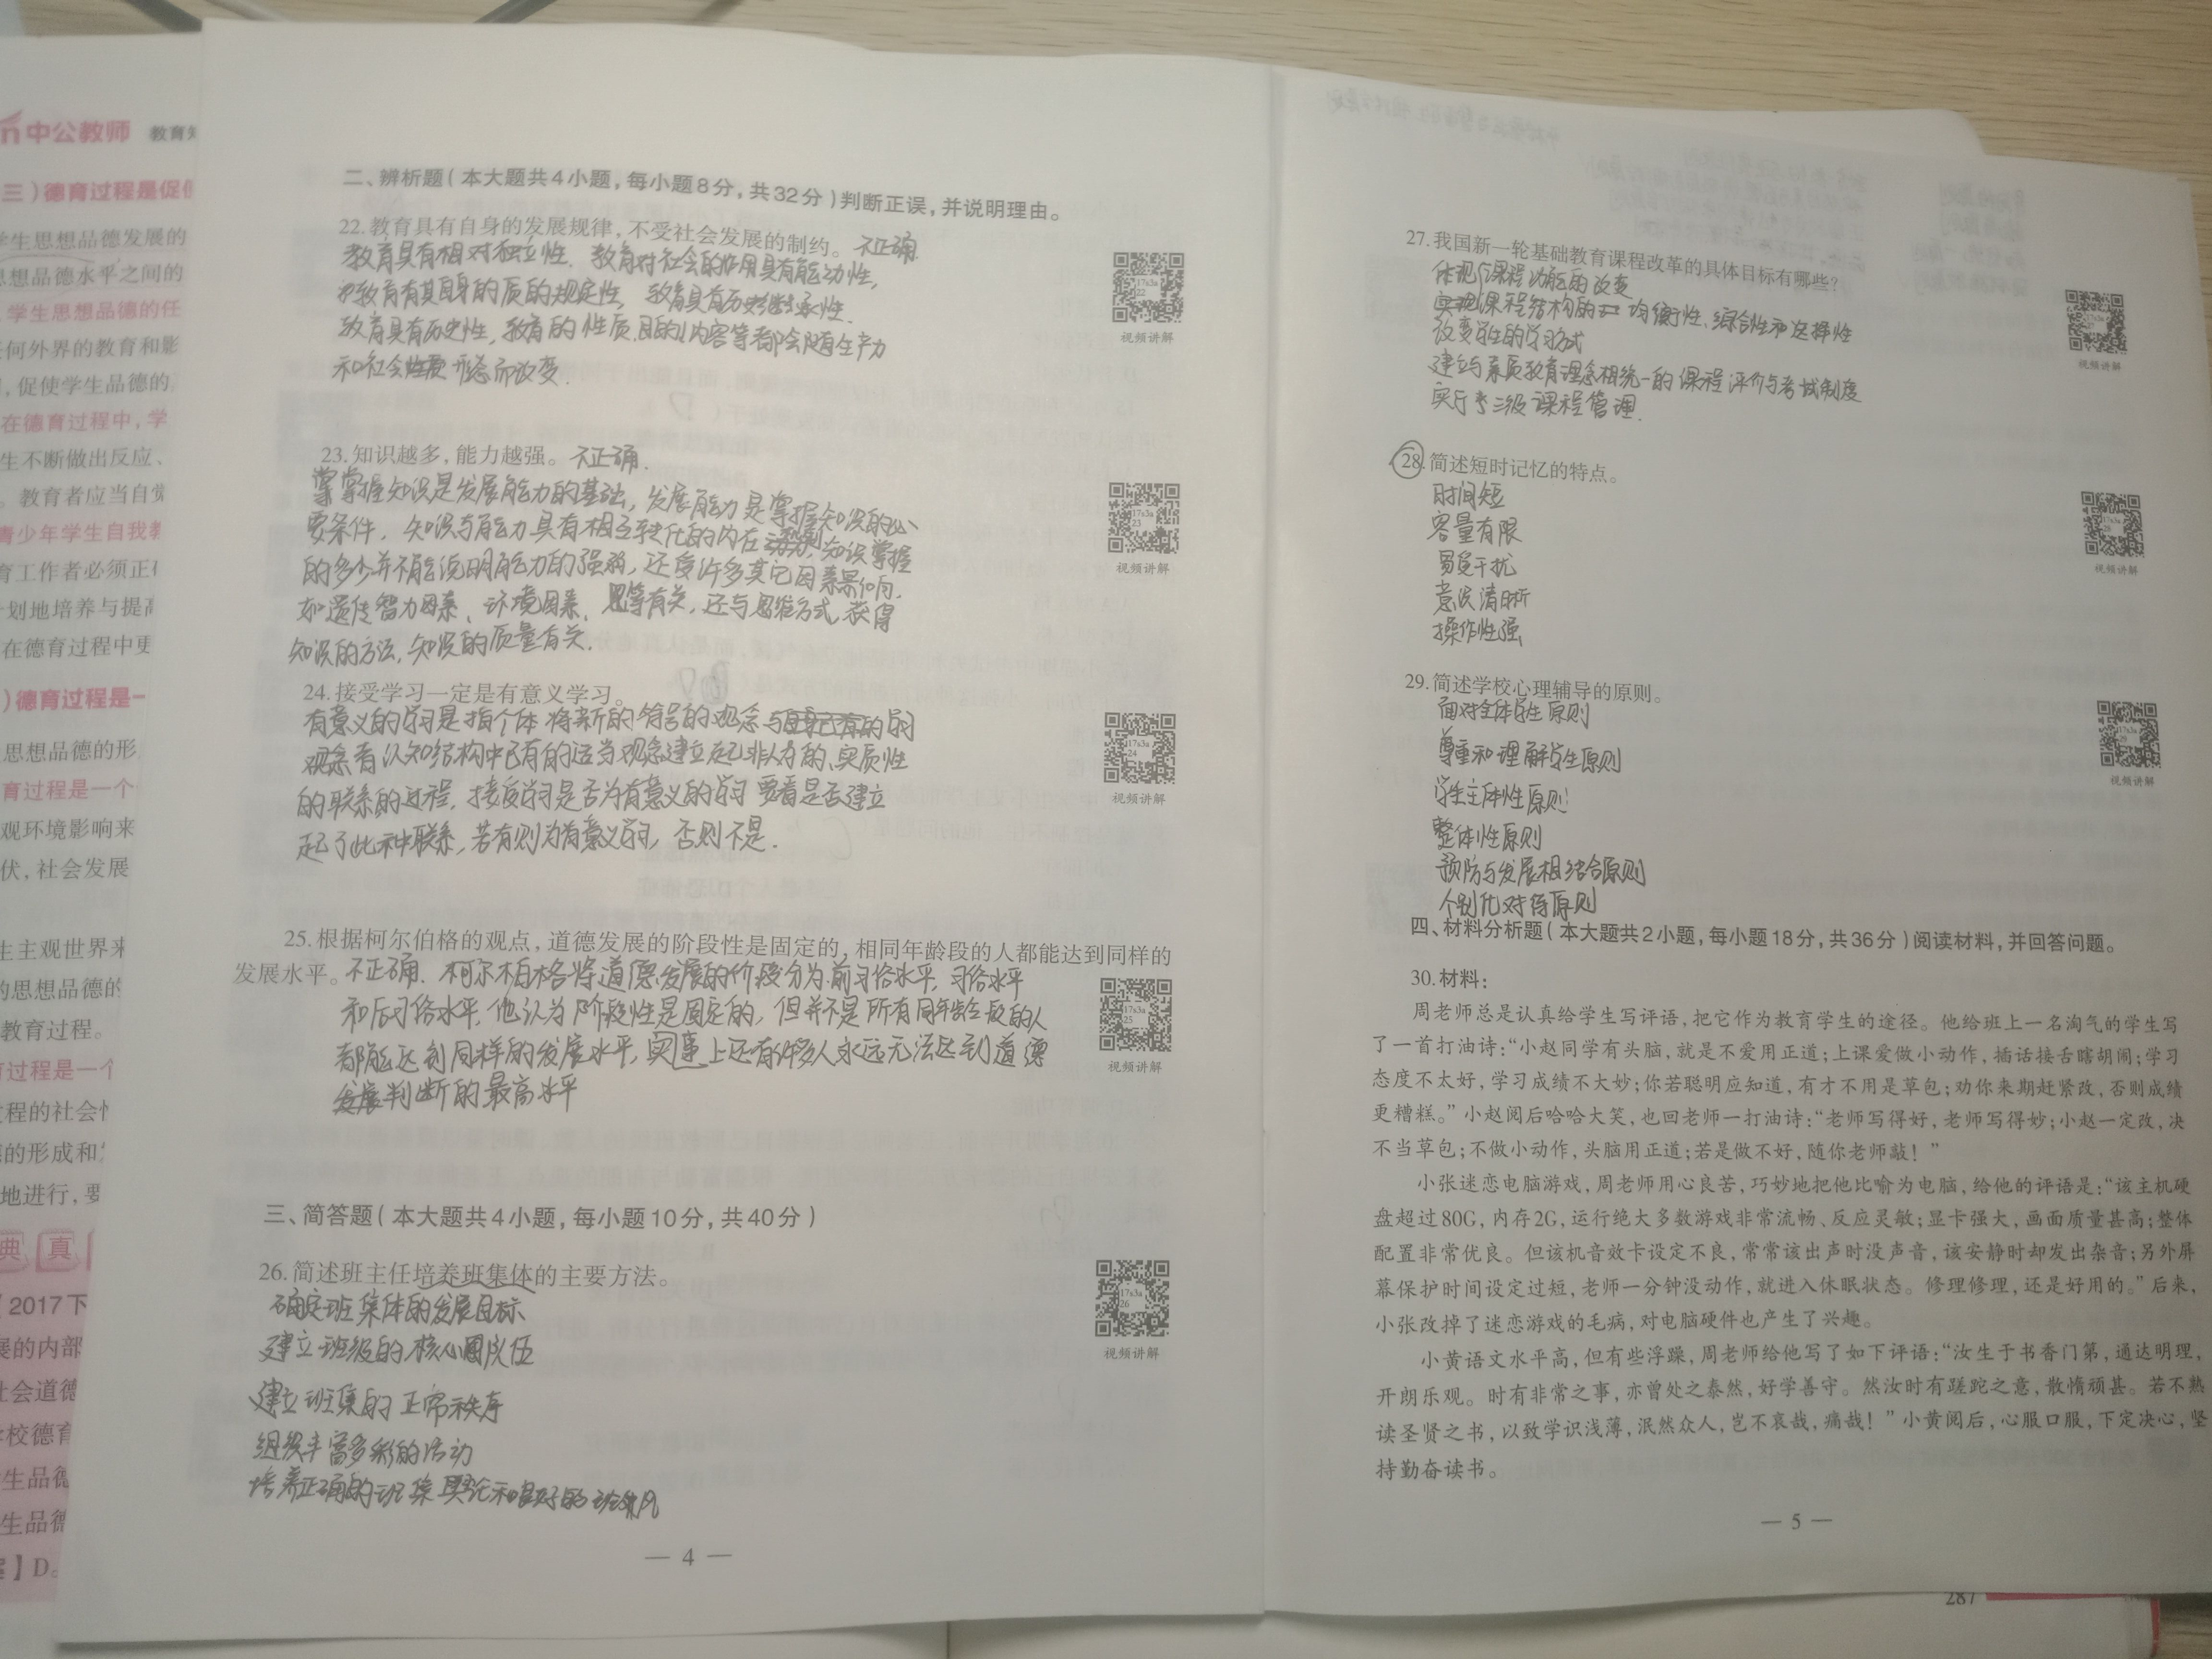 中公教师 教育知
三）德育过程是促使
学生思想品德发展的
思想品德水平之间的
学生思想品德的任
任何外界的教育和影
，促使学生品德的
在德育过程中，学
生不断做出反应、
。教育者应当自觉
青少年学生自我教
育工作者必须正确
计划地培养与提高
在德育过程中更
）德育过程是一
思想品德的形
育过程是一个
观环境影响来
伏，社会发展
生主观世界来
的思想品德的
教育过程。
育过程是一个
过程的社会性
德的形成和发
地进行，要
典 真
2017下
展的内部
社会道德
学校德育
生品德
生品德
】D。
二、辨析题（本大题共4小题，每小题8分，共32分）判断正误，并说明理由。
22.教育具有自身的发展规律，不受社会发展的制约。不正确
教育具有相对独立性、教育对社会的作用具有能动性，
教育有其自身的质的规定性，教育具有历史继承性．
教育具有历史性，教育的性质、目的、内容等都会随着生产力
和社会形态而改变．
视频讲解
23.知识越多，能力越强。不正确．
掌握知识是发展能力的基础，发展能力是掌握知识的必
要条件．知识与能力具有相互转化的内在机制，知识掌握
的多少并不能说明能力的强弱，还受许多其它因素影响．
如遗传智力因素、环境因素、等有关，还与思维方式、获得
知识的方法、知识的质量有关．
视频讲解
24.接受学习一定是有意义学习。
有意义的学习是指个体将新的符号的观念与
认知结构中已有的适当观念建立起非人为的、实质性
的联系的过程．接受学习是否为有意义的学习要看是否建立
起了此种联系，若有则为有意义学习，否则不是．
视频讲解
25.根据柯尔伯格的观点，道德发展的阶段性是固定的，相同年龄段的人都能达到同样的
发展水平。不正确．柯尔柏格将道德发展的阶段分为前习俗水平，习俗水平
和后习俗水平．他认为阶段性是固定的，但并不是所有同年龄段的人
都能达到同样的发展水平，事实上还有许多人永远无法达到道德
判断的最高水平
视频讲解
三、简答题（本大题共4小题，每小题10分，共40分）
26.简述班主任培养班集体的主要方法。
确定班集体的发展目标
建立班级的核心队伍
建立班集的正常秩序
组织丰富多彩的活动
培养正确的班集舆论和良好的班风
视频讲解
— 4 —
27.我国新一轮基础教育课程改革的具体目标有哪些？
体现课程功能的改变
实现课程结构的均衡性、综合性和选择性
改变学生的学习方式
建立与素质教育理念相统一的课程评价与考试制度
实行三级课程管理．
视频讲解
28.简述短时记忆的特点。
时间短
容量有限
易受干扰
意识清晰
操作性强
视频讲解
29.简述学校心理辅导的原则。
面对全体学生原则
尊重和理解学生原则
学生主体性原则
整体性原则
预防与发展相结合原则
个别化对待原则
视频讲解
四、材料分析题（本大题共2小题，每小题18分，共36分）阅读材料，并回答问题。
30.材料：
周老师总是认真给学生写评语，把它作为教育学生的途径。他给班上一名淘气的学生写
了一首打油诗：“小赵同学有头脑，就是不爱用正道；上课爱做小动作，插话接舌瞎胡闹；学习
态度不太好，学习成绩不大妙；你若聪明应知道，有才不用是草包；劝你来期赶紧改，否则成绩
更糟糕。”小赵阅后哈哈大笑，也回老师一打油诗：“老师写得好，老师写得妙；小赵一定改，决
不当草包；不做小动作，头脑用正道；若是做不好，随你老师敲！”
小张迷恋电脑游戏，周老师用心良苦，巧妙地把他比喻为电脑，给他的评语是：“该主机硬
盘超过80G，内存2G，运行绝大多数游戏非常流畅、反应灵敏；显卡强大，画面质量甚高；整体
配置非常优良。但该机音效卡设定不良，常常该出声时没声音，该安静时却发出杂音；另外屏
幕保护时间设定过短，老师一分钟没动作，就进入休眠状态。修理修理，还是好用的。”后来，
小张改掉了迷恋游戏的毛病，对电脑硬件也产生了兴趣。
小黄语文水平高，但有些浮躁，周老师给他写了如下评语：“汝生于书香门第，通达明理，
开朗乐观。时有非常之事，亦曾处之泰然，好学善守。然汝时有蹉跎之意，散惰顽甚。若不熟
读圣贤之书，以致学识浅薄，泯然众人，岂不哀哉，痛哉！”小黄阅后，心服口服，下定决心，坚
持勤奋读书。
— 5 —
287